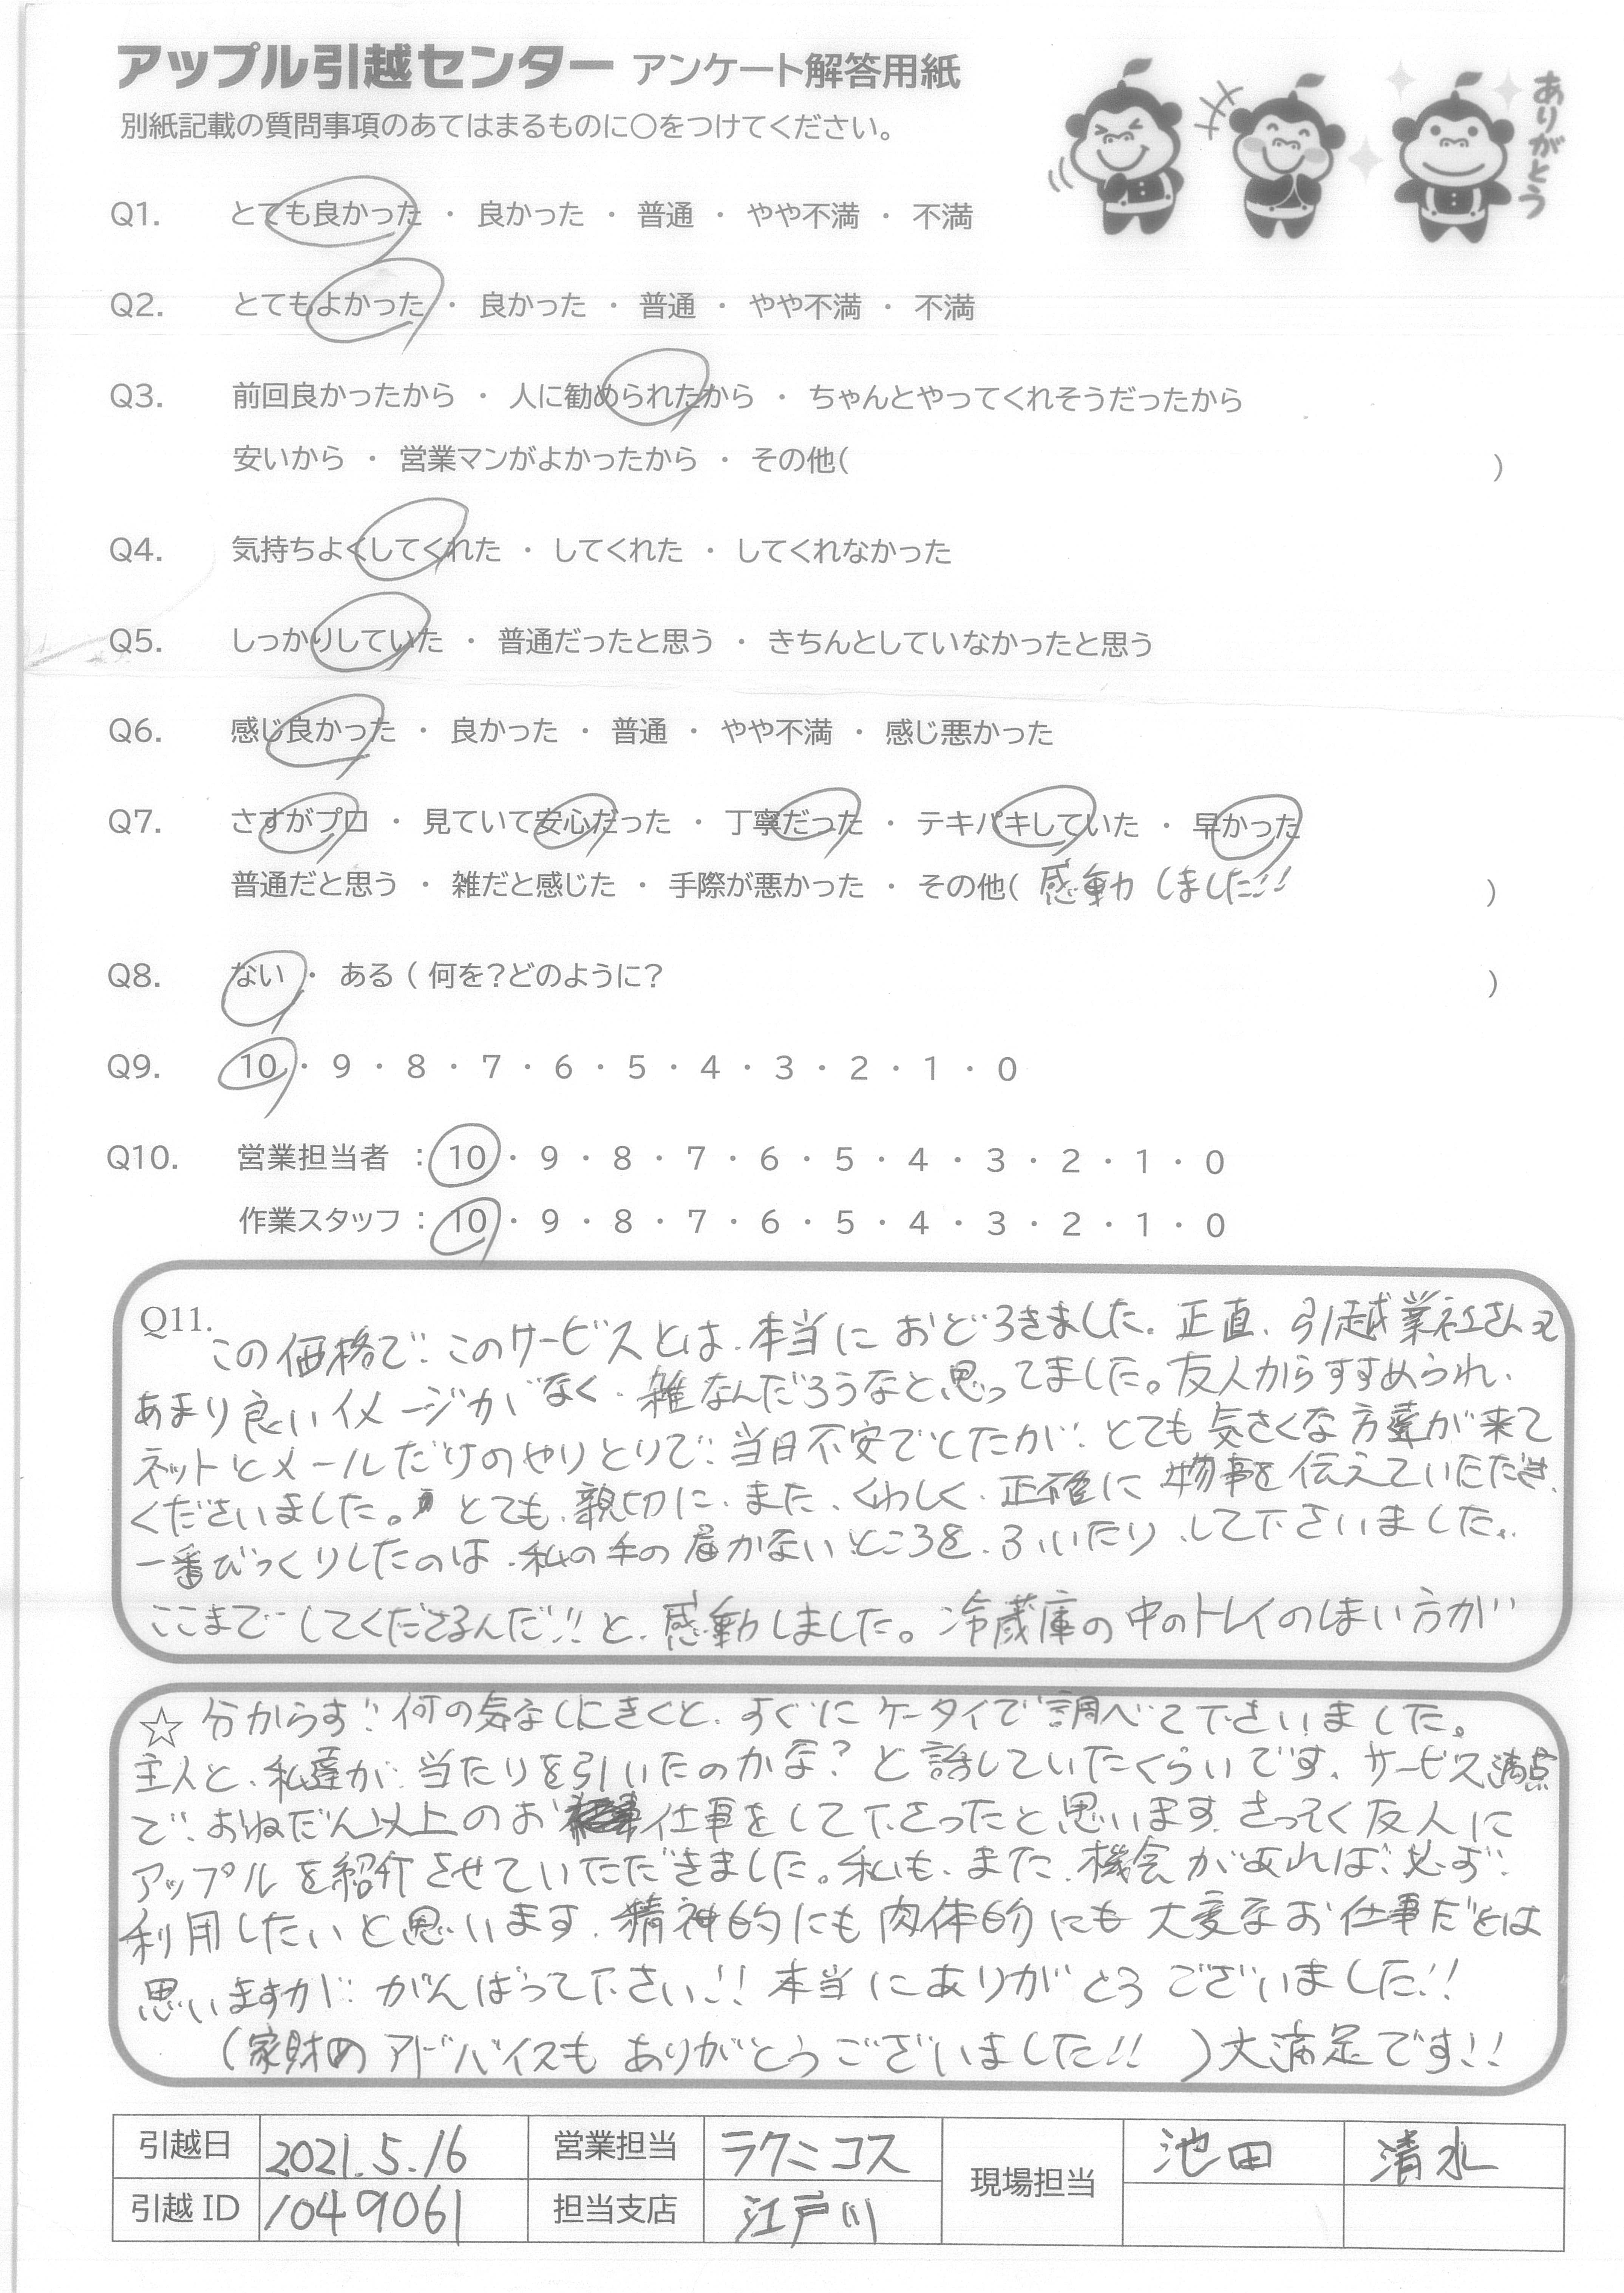 アップル引越センター アンケート解答用紙
ありがとう
別紙記載の質問事項のあてはまるものに○をつけてください。
Q1. とても良かった ・ 良かった ・ 普通 ・ やや不満 ・ 不満
Q2. とてもよかった ・ 良かった ・ 普通 ・ やや不満 ・ 不満
Q3. 前回良かったから ・ 人に勧められたから ・ ちゃんとやってくれそうだったから
安いから ・ 営業マンがよかったから ・ その他( )
Q4. 気持ちよくしてくれた ・ してくれた ・ してくれなかった
Q5. しっかりしていた ・ 普通だったと思う ・ きちんとしていなかったと思う
Q6. 感じ良かった ・ 良かった ・ 普通 ・ やや不満 ・ 感じ悪かった
Q7. さすがプロ ・ 見ていて安心だった ・ 丁寧だった ・ テキパキしていた ・ 早かった
普通だと思う ・ 雑だと感じた ・ 手際が悪かった ・ その他( 感動しました!! )
Q8. ない ・ ある ( 何を?どのように? )
Q9. 10 ・ 9 ・ 8 ・ 7 ・ 6 ・ 5 ・ 4 ・ 3 ・ 2 ・ 1 ・ 0
Q10. 営業担当者 : 10 ・ 9 ・ 8 ・ 7 ・ 6 ・ 5 ・ 4 ・ 3 ・ 2 ・ 1 ・ 0
作業スタッフ : 10 ・ 9 ・ 8 ・ 7 ・ 6 ・ 5 ・ 4 ・ 3 ・ 2 ・ 1 ・ 0
Q11. この価格で、このサービスとは、本当におどろきました。正直、引越業社さんて
あまり良いイメージがなく、雑なんだろうなと思ってました。友人からすすめられ、
ネットとメールだけのやりとりで、当日不安でしたが、とても気さくな方達が来て
くださいました。とても、親切に、また、くわしく、正確に物事を伝えていただき、
一番びっくりしたのは、私の手の届かないところを、ふいたり、して下さいました。
ここまでしてくださるんだ!!と、感動しました。冷蔵庫の中のトレイのしまい方が
☆ 分からず、何の気なしにきくと、すぐにケータイで調べて下さいました。
主人と、私達が、当たりを引いたのかな?と話していたくらいです。サービス満点
で、おねだん以上のお仕事をして下さったと思います。さっそく友人に
アップルを紹介させていただきました。私も、また、機会があれば、必ず、
利用したいと思います。精神的にも肉体的にも大変なお仕事だとは
思いますが、がんばって下さい!!本当にありがとうございました!!
(家財のアドバイスもありがとうございました!! )大満足です!!
引越日 2021.5.16 営業担当 ラクニコス 現場担当 池田 清水
引越 ID 1049061 担当支店 江戸川